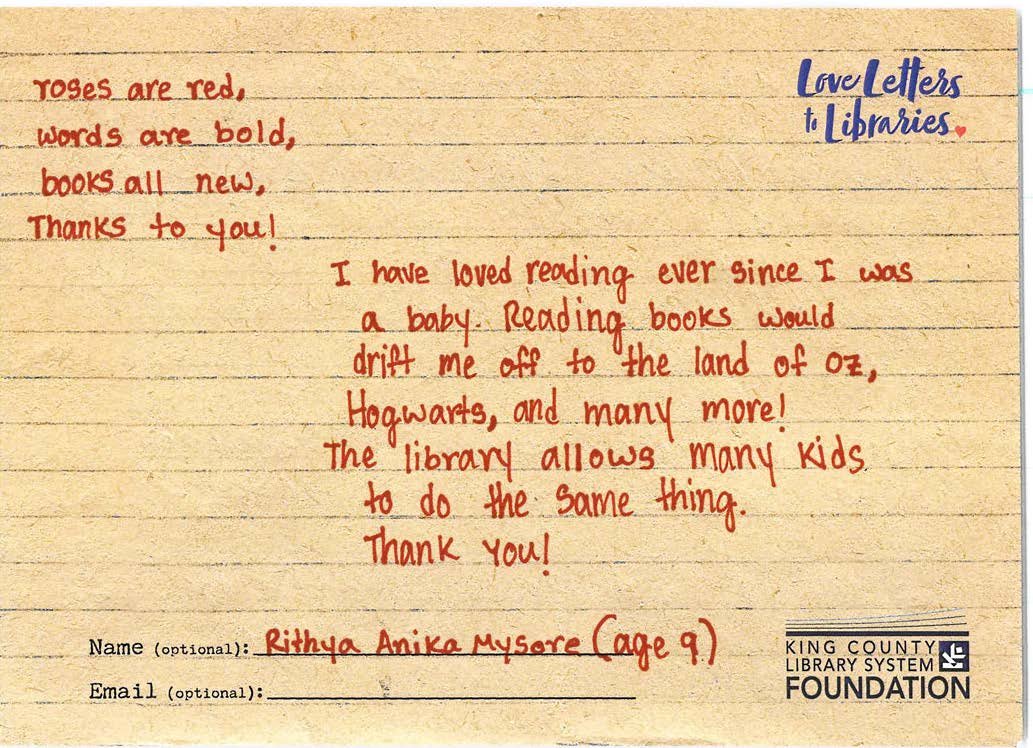 Love Letters
to Libraries
roses are red,
words are bold,
books all new,
Thanks to you!
I have loved reading ever since I was
a baby. Reading books would
drift me off to the land of Oz,
Hogwarts, and many more!
The library allows many kids
to do the same thing.
Thank you!
Name (optional): Rithya Anika Mysore (age 9)
Email (optional):
KING COUNTY
LIBRARY SYSTEM
FOUNDATION